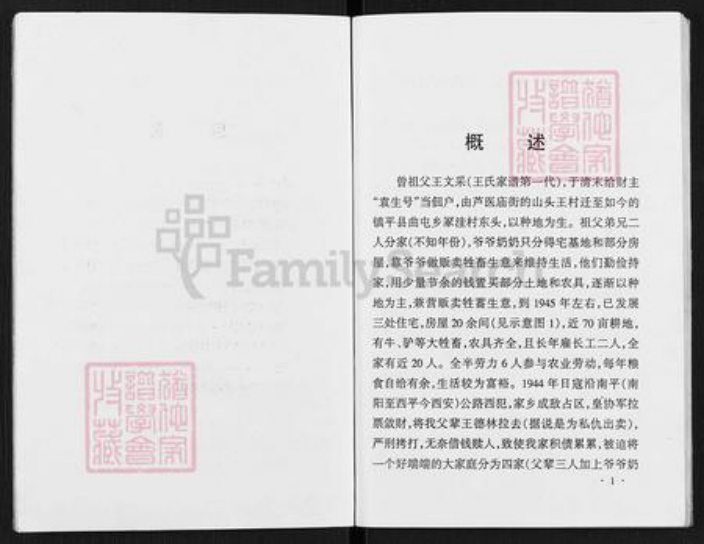 概 述
曾祖父王文采(王氏家谱第一代),于清末给财主
“袁生号”当佃户,由芦医庙街的山头王村迁至如今的
镇平县曲屯乡冢洼村东头,以种地为生。祖父弟兄二
人分家(不知年份),爷爷奶奶只分得宅基地和部分房
屋,靠爷爷做贩卖牲畜生意来维持生活,他们勤俭持
家,用少量节余的钱置买部分土地和农具,逐渐以种
地为主,兼营贩卖牲蓄生意,到 1945 年左右,已发展
三处住宅,房屋 20 余间(见示意图 1),近 70 亩耕地,
有牛、驴等大牲畜,农具齐全,且长年雇长工二人,全
家有近 20 人。全半劳力 6 人参与农业劳动,每年粮
食自给有余,生活较为富裕。1944 年日寇沿南平(南
阳至西平今西安)公路西犯,家乡成敌占区,皇协军拉
票敛财,将我父辈王德林拉去(据说是为私仇出卖),
严刑拷打,无奈借钱赎人,致使我家积债累累,被迫将
一个好端端的大家庭分为四家(父辈三人加上爷爷奶
· 1 ·
FamilySearch